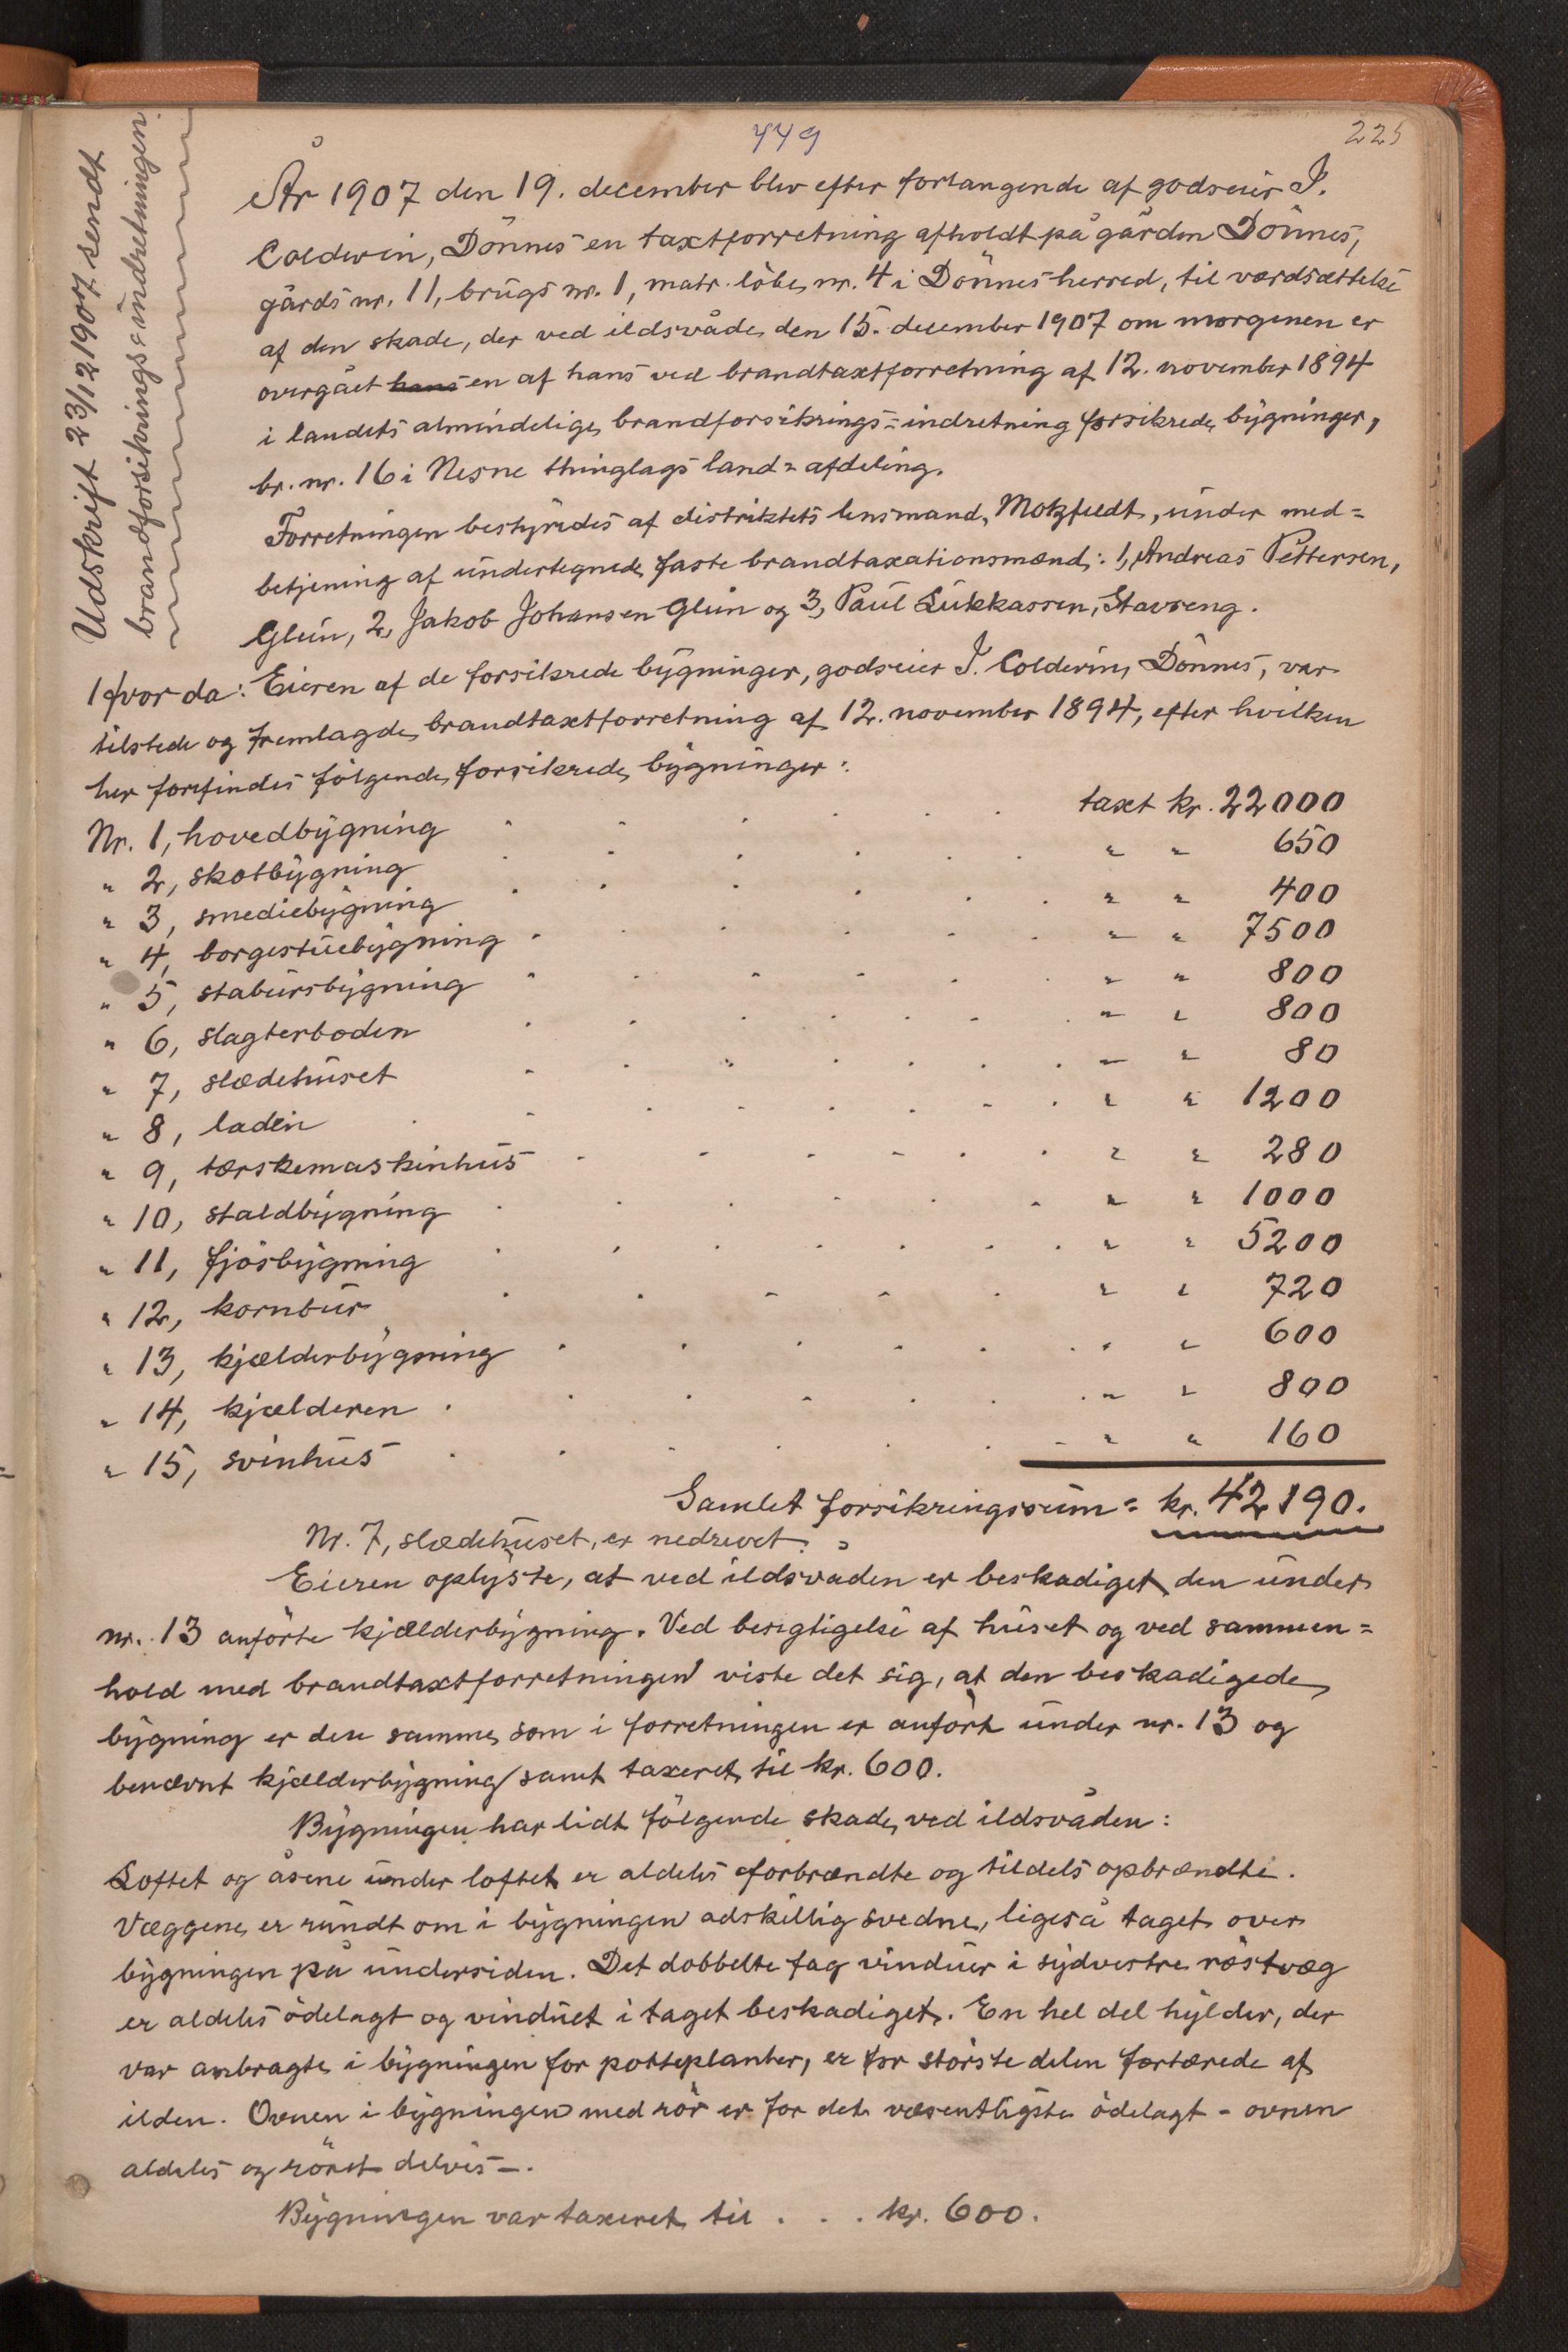 449
225
Udskrift 23/12 1907 sendt
brandforsikrings=indretningen.
År 1907 den 19. december blev efter forlangende af godseier I.
Coldevin, Dönnes en taxtforretning afholdt på gården Dönnes,
gårds nr. 11, brugs nr. 1, matr. löbe nr. 4 i Dönnes herred, til værdsættelse
af den skade, der ved ildsvåde den 15. december 1907 om morgenen er
overgået hans en af hans ved brandtaxtforretning af 12. november 1894
i landets almindelige brandforsikrings=indretning forsikrede bygninger,
br. nr. 16 i Nesne thinglags land=afdeling.
Forretningen bestyredes af distriktets lensmand, Motzfeldt, under med=
betjening af undertegnede faste brandtaxationsmænd: 1, Andreas Pettersen,
Glein, 2, Jakob Johansen Glein og 3, Paul Lukkassen, Stavseng.
Hvor da: Eieren af de forsikrede bygninger, godseier I. Coldevin, Dönnes, var
tilstede og fremlagde brandtaxtforretning af 12. november 1894, efter hvilken
her forefindes fölgende forsikrede bygninger:
Nr. 1, hovedbygning . . . . . . taxt kr. 22000
" 2, skotbygning . . . . . . " " 650
" 3, smediebygning . . . . . . " " 400
" 4, borgestuebygning . . . . . " " 7500
" 5, stabursbygning . . . . . " " 800
" 6, slagterboden . . . . . . . " " 800
" 7, slædehuset . . . . . . . " " 80
" 8, laden . . . . . . . " " 1200
" 9, tærskemaskinhus . . . . . . " " 280
" 10, staldbygning . . . . . . " " 1000
" 11, fjösbygning . . . . . . . " " 5200
" 12, kornbur . . . . . " " 720
" 13, kjælderbygning . . . . . . " " 600
" 14, kjælderen . . . . . . . " " 800
" 15, svinhus . . . . . . . " " 160
Samlet forsikringssum = kr. 42190.
Nr. 7, slædehuset, er nedrevet.
Eieren oplyste, at ved ildsvåden er beskadiget den under
nr. 13 anförte kjælderbygning. Ved besigtigelse af huset og ved sammen=
hold med brandtaxtforretningen viste det sig, at den beskadigede
bygning er den samme, som i forretningen er anfört under nr. 13 og
benævnt kjælderbygning samt taxeret til kr. 600.
Bygningen har lidt fölgende skade ved ildsvåden:
Loftet og åsene under loftet er aldeles forbrændte og tildels opbrændte.
Væggene er rundt om i bygningen adskillig svedne, ligeså taget over
bygningen på undersiden. Det dobbelte fag vinduer i sydvestre röstvæg
er aldeles ödelagt og vinduet i taget beskadiget. En hel del hylder, der
var anbragte i bygningen for potteplanter, er for störste delen fortærede af
ilden. Ovnen i bygningen med rör er for det væsentligste ödelagt - ovnen
aldeles og röret delvis -.
Bygningen var taxeret til . . . kr. 600.